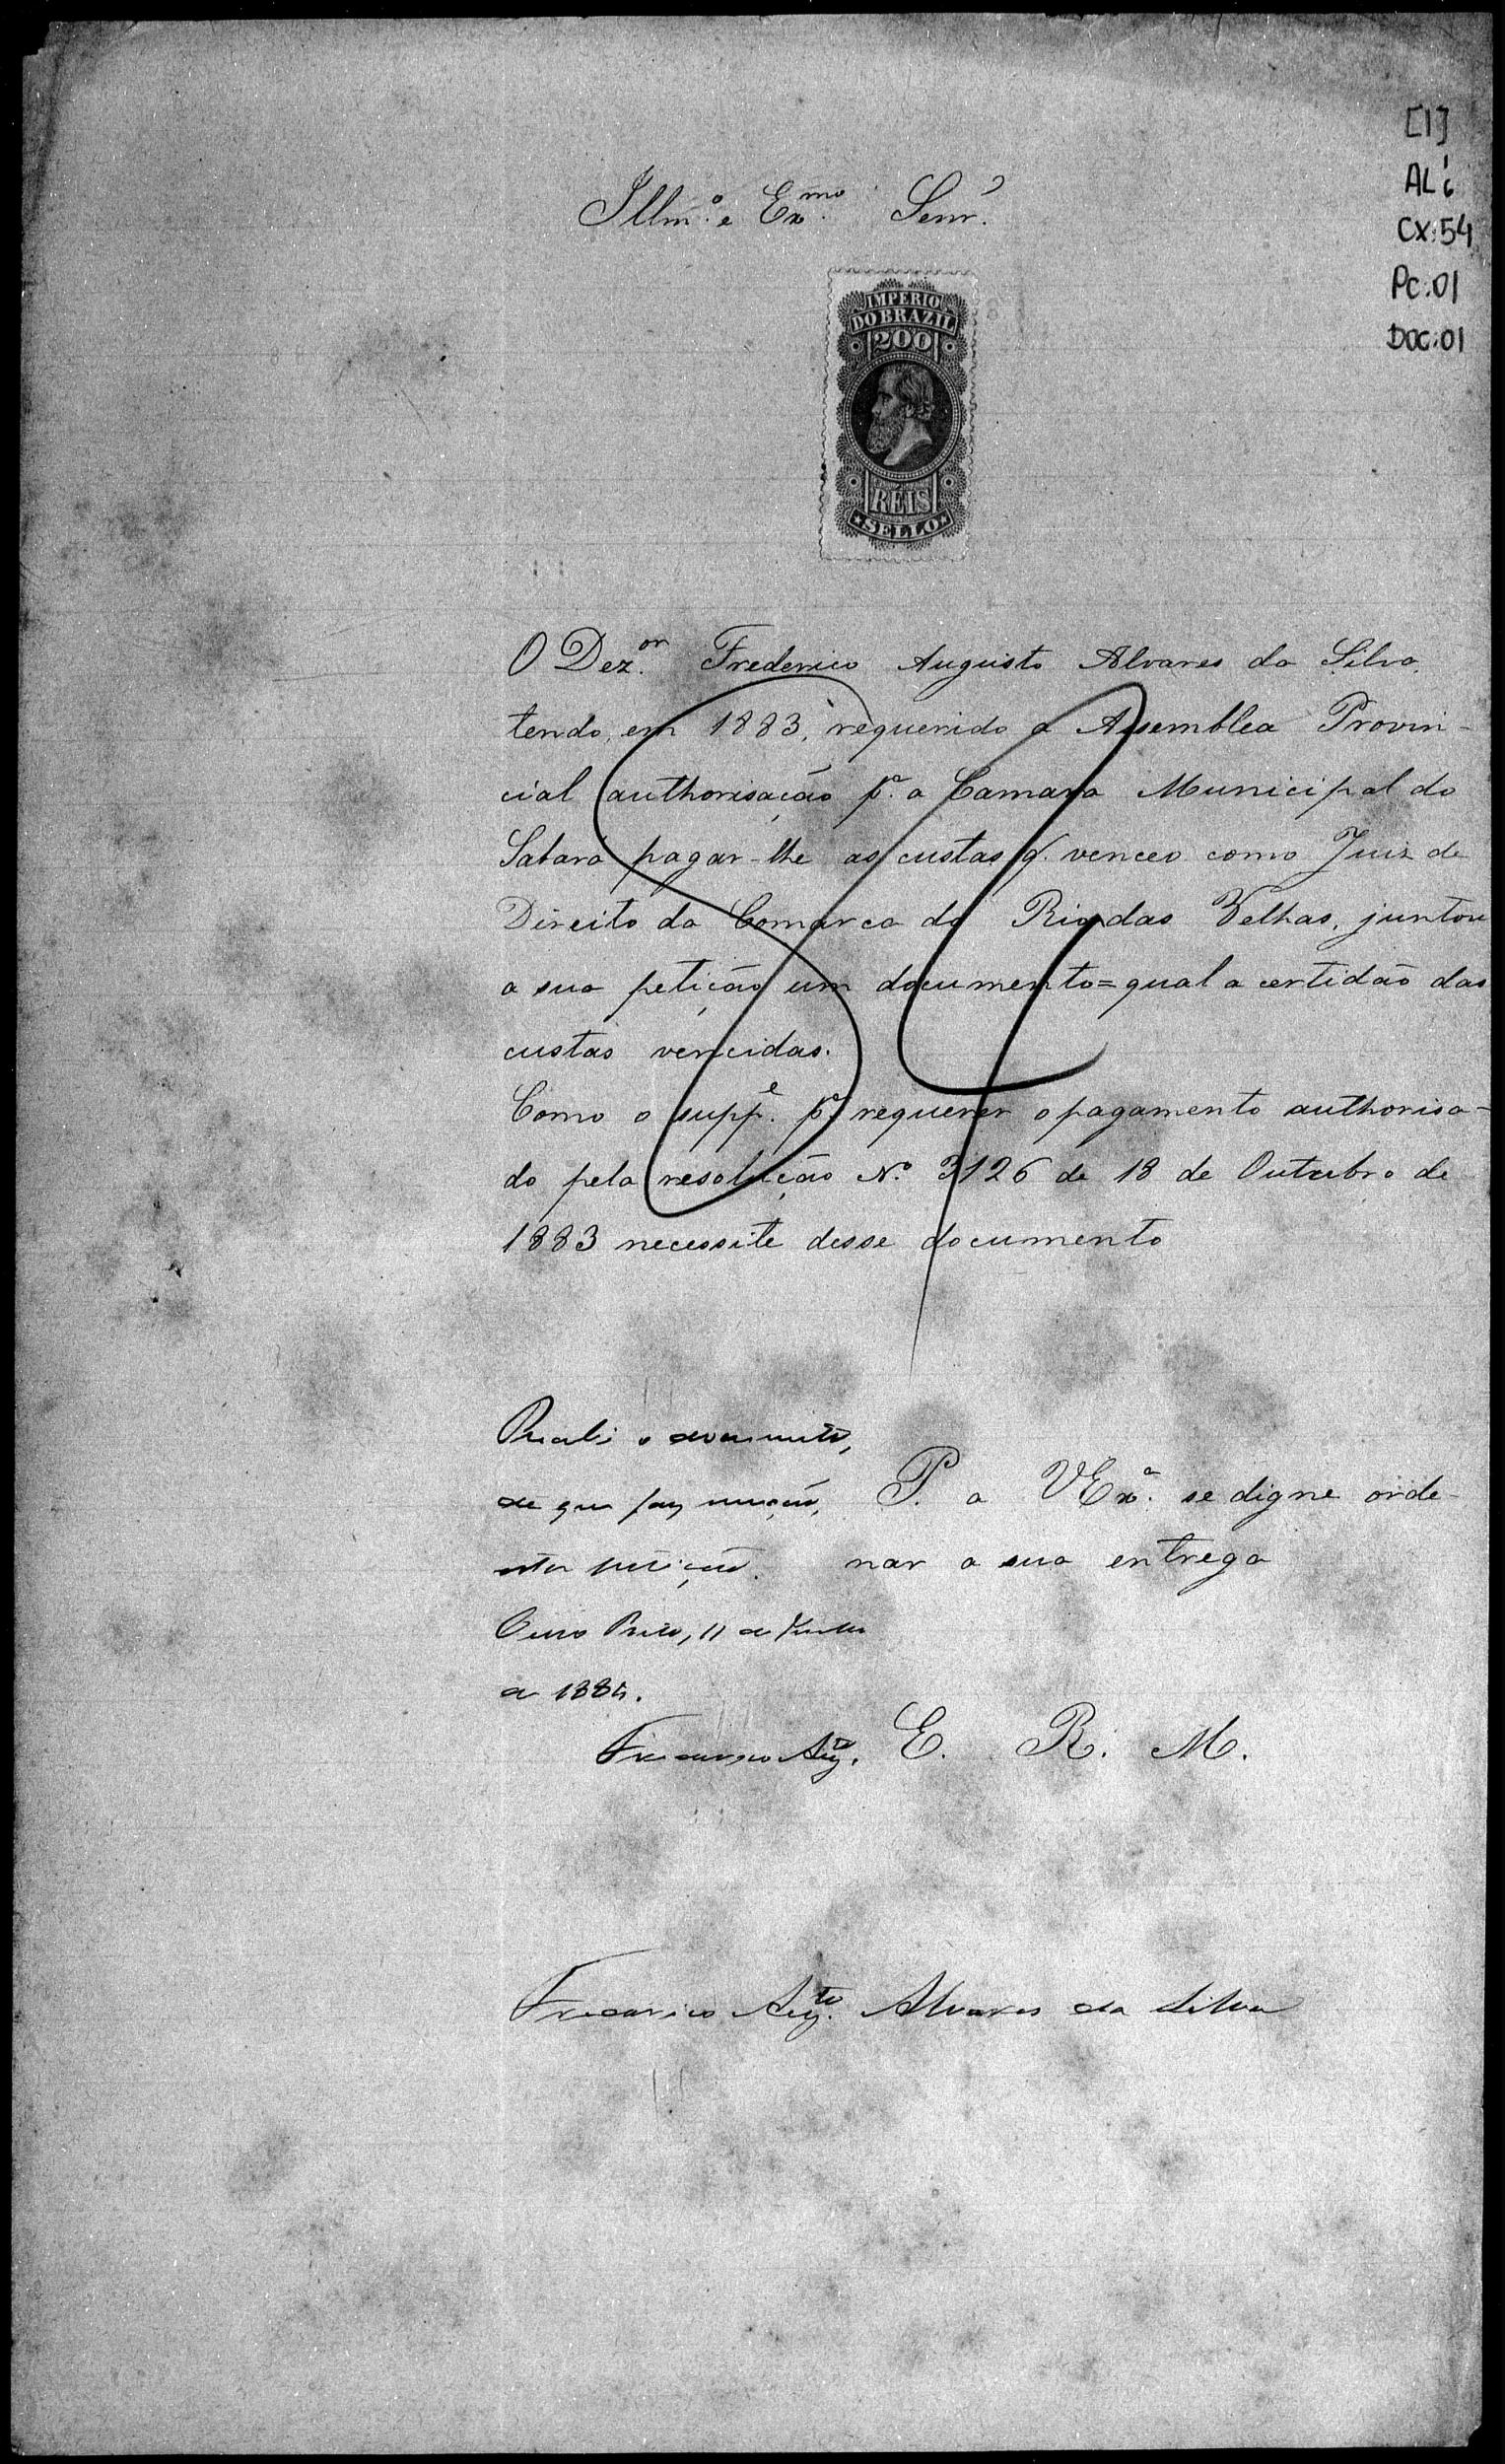 [1]
AL i
CX:54
PC:01
DOC:01
Illm.º e Ex.mo Senr.
IMPERIO
DO BRAZIL
200
RÉIS
SELLO
O Dez.or Frederico Augusto Alvares da Silva,
tendo, em 1883, requerido a Assemblea Provin-
cial authorisação p.a a Camara Municipal do
Sabará pagar-lhe as custas q. venceo como Juiz de
Direito da Comarca do Rio das Velhas, juntou
a sua petição um documento = qual a certidão das
custas vencidas.
Como o supp.e p.a requerer o pagamento authorisa-
do pela resolução N.º 3126 de 18 de Outubro de
1883 necessite desse documento
P. a VEx.a se digne orde-
nar a sua entrega
E. R. M.
Recebi o documento,
de que faz menção,
esta petição.
Ouro Preto, 11 de
de 1884.
Frederico Aug.to
Frederico Aug.to Alvares da Silva